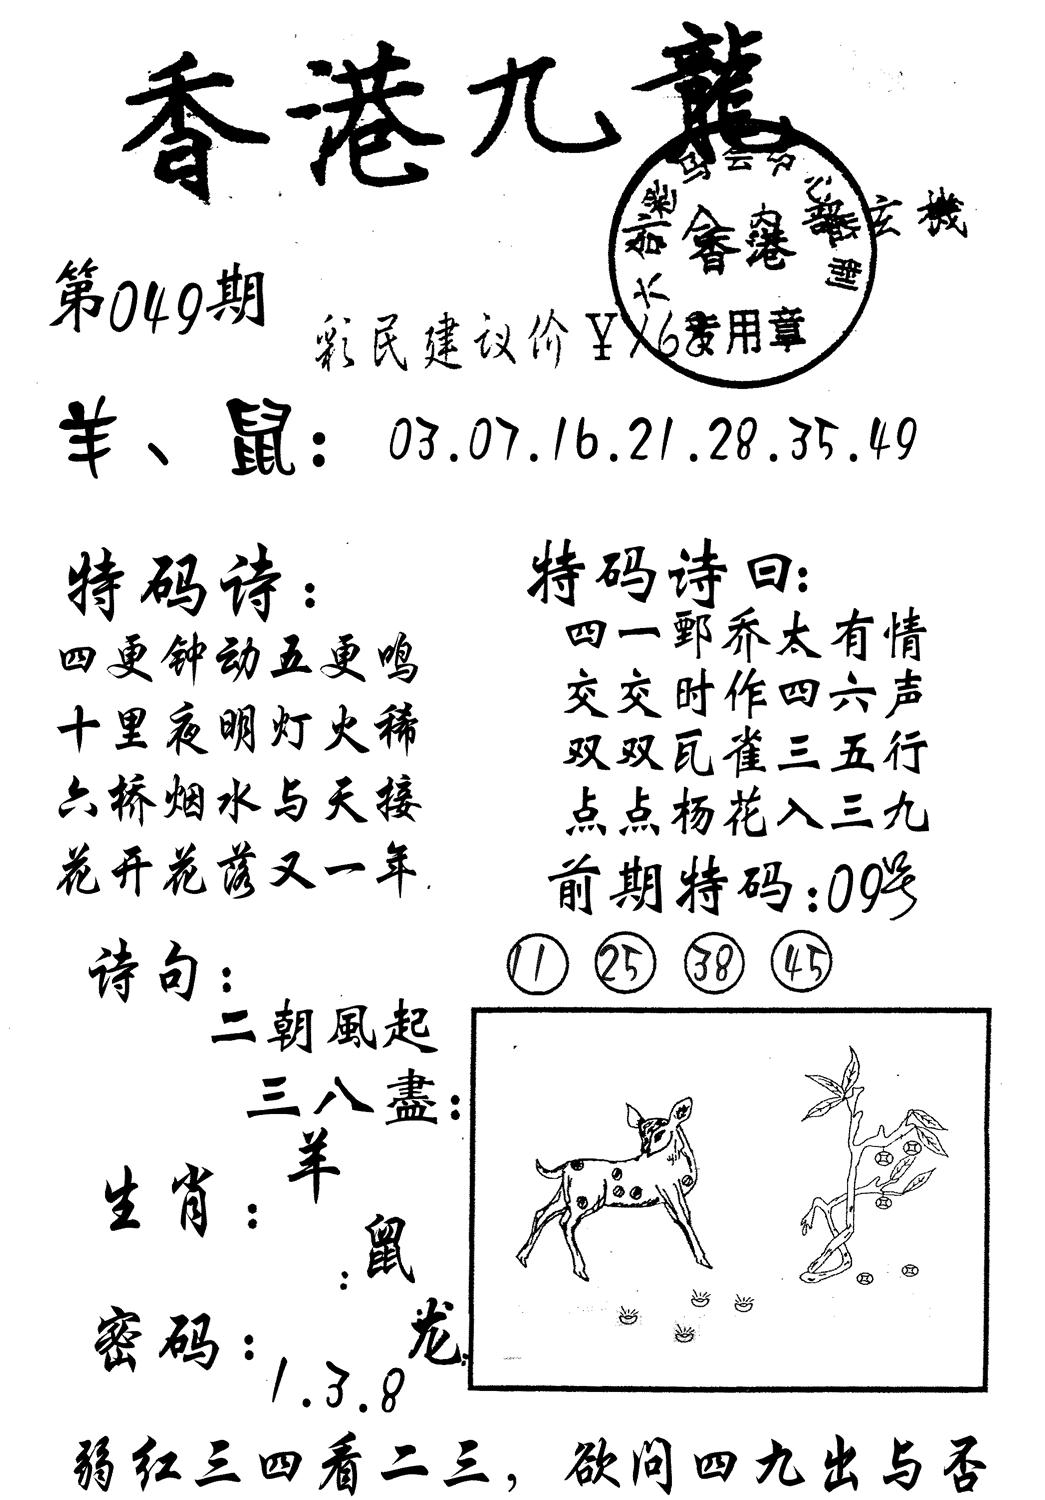 香港九龍
六合彩马会中心
香港
内部玄機
专用章
第049期
彩民建议价￥168
羊、鼠：03.07.16.21.28.35.49
特码诗：
四更钟动五更鸣
十里夜明灯火稀
六桥烟水与天接
花开花落又一年.
特码诗曰：
四一鄄乔太有情
交交时作四六声
双双瓦雀三五行
点点杨花入三九
前期特码：09号
11 25 38 45
诗句：
二朝風起
三八盡：
生肖：羊
：鼠
龙
密码：
1.3.8
弱红三四看二三，欲问四九出与否